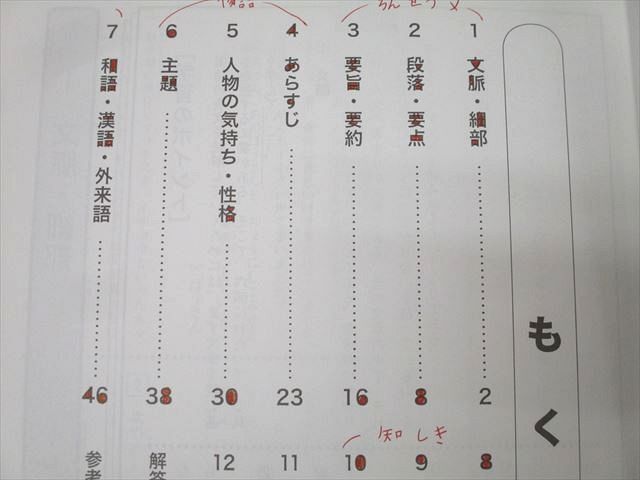 もく
ろんせつ文
1 文脈・細部 2
2 段落・要点 8
3 要旨・要約 16
物語
4 あらすじ 23
5 人物の気持ち・性格 30
6 主題 38
7 和語・漢語・外来語 46
知しき
8
9
10
11
12
解答
参考